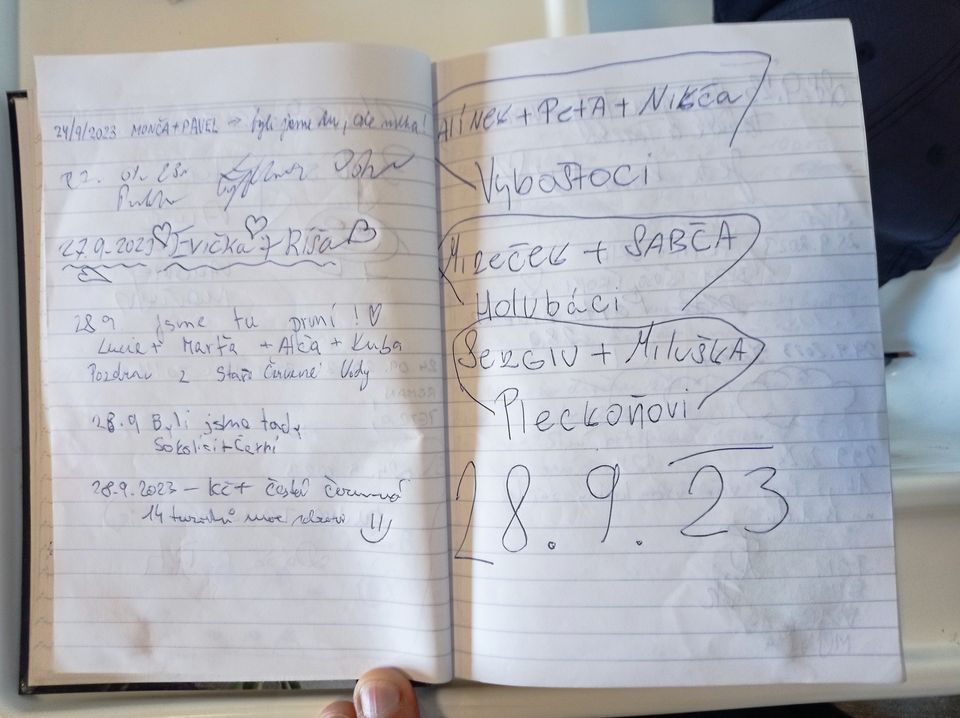 24/9/2023 MONČA+PAVEL → byli jsme tu, ale mlha!
27.9.2023 Evička + Ríša
28.9 jsme tu první!
Lucie + Marťa + Alča + Kuba
Pozdrav z Staré Červené Vody
28.9 Byli jsme tady
Sokolíci + Černí
28.9.2023 – KČT Česká Čermná
14 turistů moc zdraví
ALÍNEK + PETA + NIKČA
Vybošťoci
MIREČEK + SABČA
Holubáci
SERGIU + MILUŠKA
Pleckoňovi
28. 9. 23